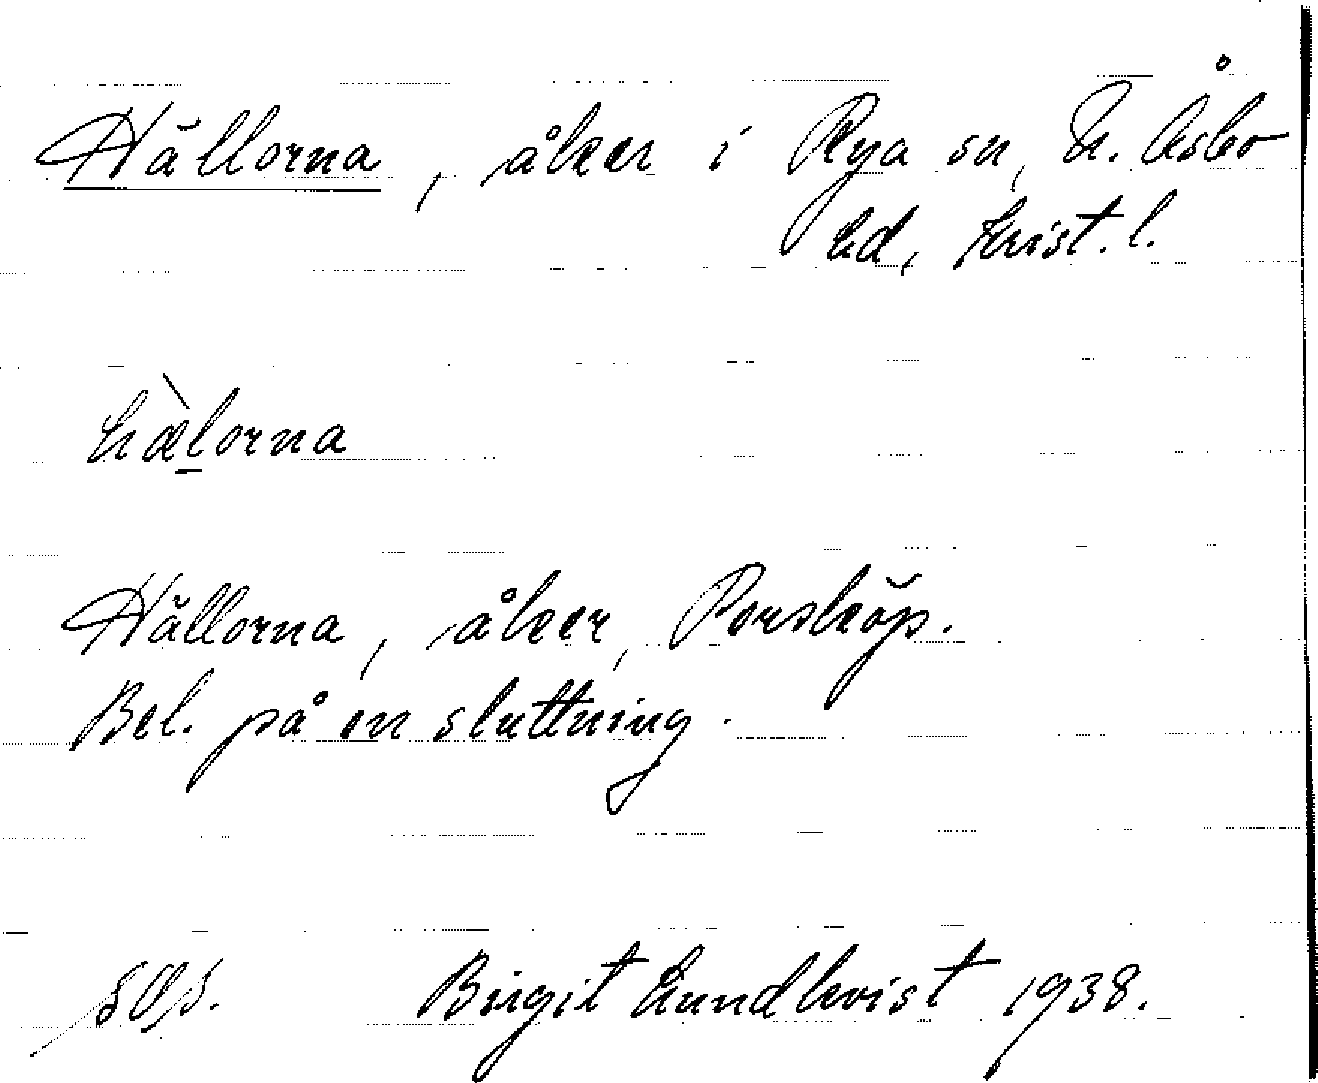 Hällorna, åker i Rya sn, N. Åsbo
hd, Krist. l.
hæ̀lorna
Hällorna, åker, Porsköp.
Bel. på en sluttning.
Birgit Lundkvist 1938.